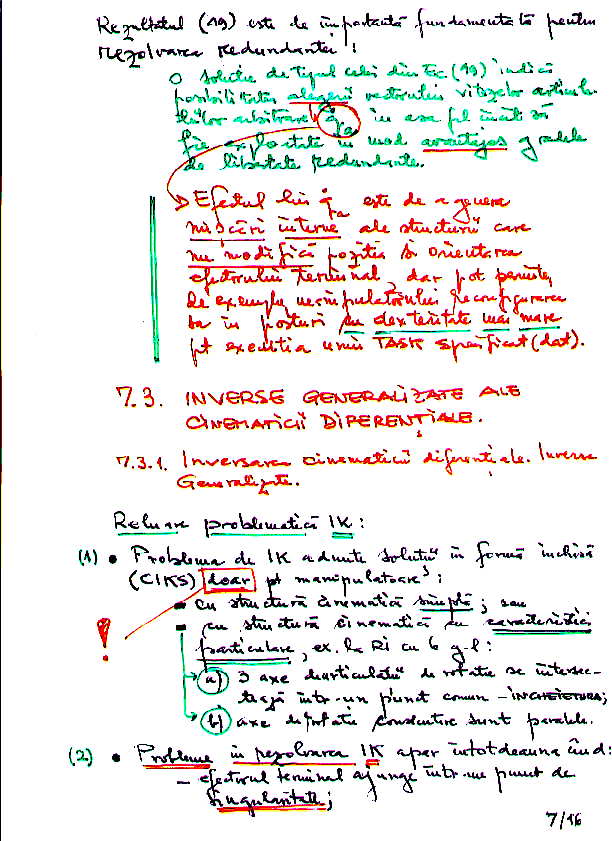 Rezultatul (19) este de importantă fundamentală pentru
rezolvarea redundanței !
O soluție de tipul celei din Ec (19) indică
posibilitatea alegerii vectorului vitezelor articula-
țiilor arbitrare q̇a în așa fel încât să
fie exploatate în mod avantajos gradele
de libertate redundante.
Efectul lui q̇a este de a genera
mișcări interne ale structurii care
nu modifică poziția și orientarea
efectorului terminal, dar pot permite,
de exemplu, manipulatorului reconfigurarea
sa în posturi cu dexteritate mai mare
pt execuția unui TASK specificat (dat).
7.3. INVERSE GENERALIZATE ALE
CINEMATICII DIFERENȚIALE.
7.3.1. Inversarea cinematicii diferențiale. Inverse
Generalizate.
Reluare problematică IK :
(1) • Problema de IK admite soluții în formă închisă
(CIKS) doar pt manipulatoare :
- cu structură cinematică simplă ; sau
! - cu structură cinematică cu caracteristici
particulare, ex. la RI cu 6 g.l :
a) 3 axe de rotație se intersec-
tează într-un punct comun - ÎNCHEIETURA;
b) axe de rotație consecutive sunt paralele.
(2) • Probleme în rezolvarea IK apar întotdeauna când :
- efectorul terminal ajunge într-un punct de
singularitate ;
7/16